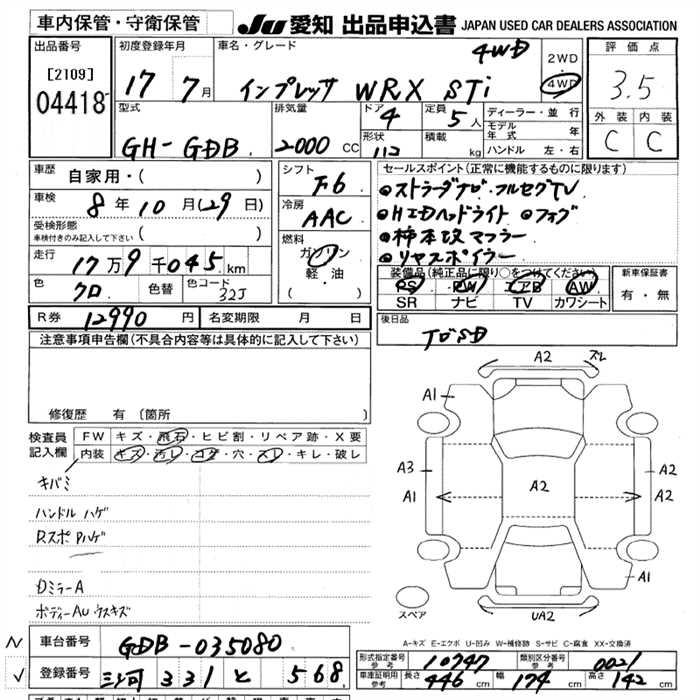 車内保管・守衛保管
JU 愛知 出品申込書 JAPAN USED CAR DEALERS ASSOCIATION
出品番号
[2109]
04418
初度登録年月
17 7月
車名・グレード
4WD
インプレッサ WRX STi
2WD
・
4WD
評価点
3.5
外装 内装
C C
型式
GH-GDB
排気量
2000 CC
ドア
4
形状
定員
5人
積載
kg
ディーラー・並行
モデル年式 年
ハンドル 左・右
車歴
自家用・( )
車検
8年10月(29日)
受検形態
車検付きのみ記入して下さい ( )
走行
17万9千045km
色
クロ
色替
色コード
32J
シフト
F6
冷房
AAC
燃料
ガソリン
軽・油
( )
セールスポイント(正常に機能するものに限ります)
●ストラーダナビ・フルセグTV
●HIDヘッドライト ●フォグ
●柿本改マフラー
●リヤスポイラー
装備品(純正品に限り○をつけてください)
PS PW エアB AW
SR ナビ TV カワシート
新車保証書
有・無
R券 12990円
名変期限 月 日
後日品
注意事項申告欄(不具合内容等は具体的に記入して下さい)
修復歴 有 〔箇所
検査員
記入欄
FW キズ・飛石・ヒビ割・リペア跡・X要
内装 キズ・汚レ・コゲ・穴・スレ・キレ・破レ
キバミ
ハンドル ハゲ
Rスポ Pハゲ
DミラーA
ボディーAU ウスキズ
A2 ズレ
A1
A3
A1
A2
A2
A2
A1
UA2
スペア
A-キズ E-エクボ U-凹み W-補修跡 S-サビ C-腐食 XX-交換済
車台番号 GDB-035080
登録番号 三河 331 と 568
形式指定番号
参考
10747
類別区分番号
参考
0021
車庫証明用
参考
長さ 446cm 幅 174cm 高さ 142cm